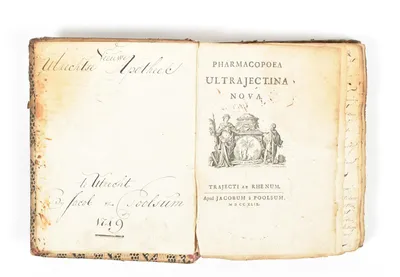 Nieuwe
Utrechtse Apotheek
t'Utrecht
By Jacob van Poolsum
1749
PHARMACOPOEA
ULTRAJECTINA
NOVA
TRAJECTI AD RHENUM,
Apud JACOBUM à POOLSUM.
MDCCXLIX.